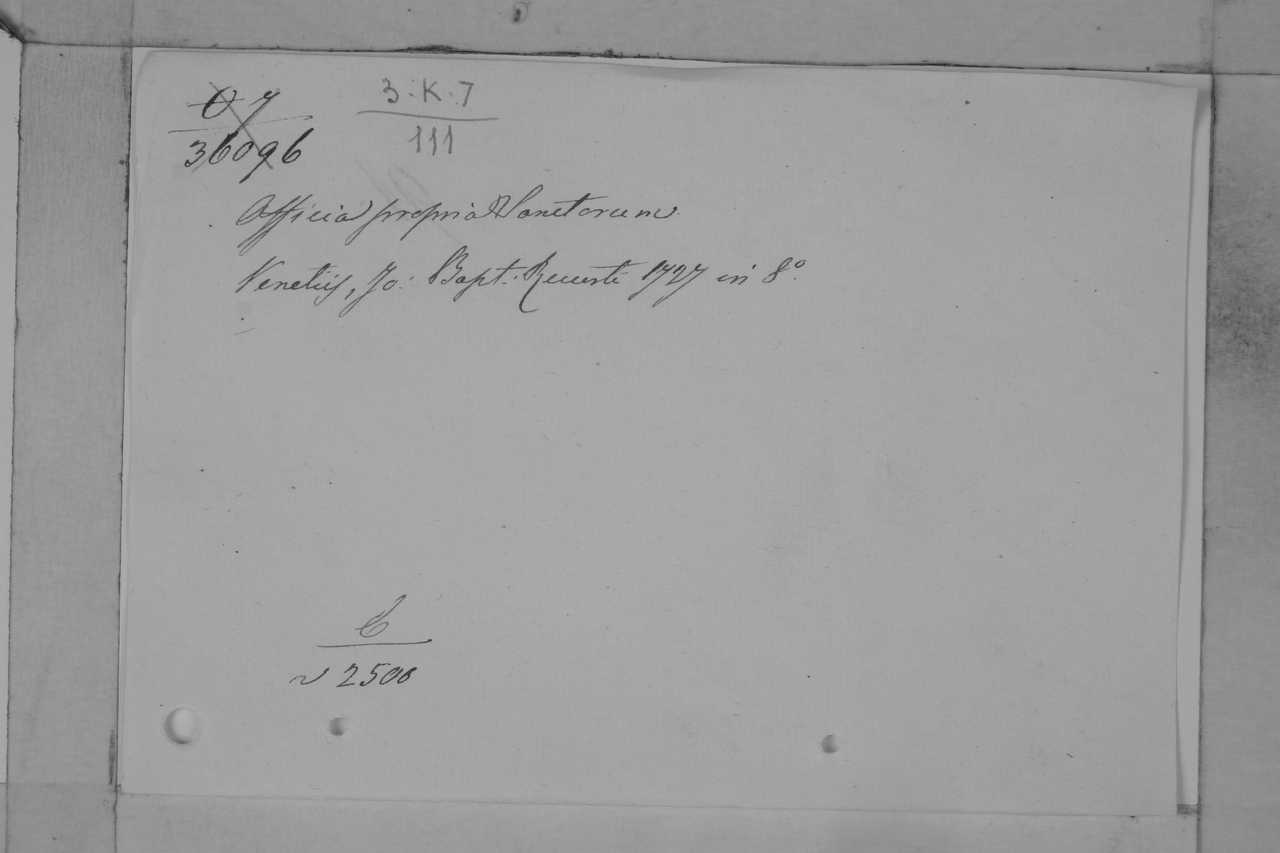 O 7 3·K·7
36096 111
Officia propria Sanctorum
Venetiis, Jo: Bapt. Recurti 1727 in 8°.
2500